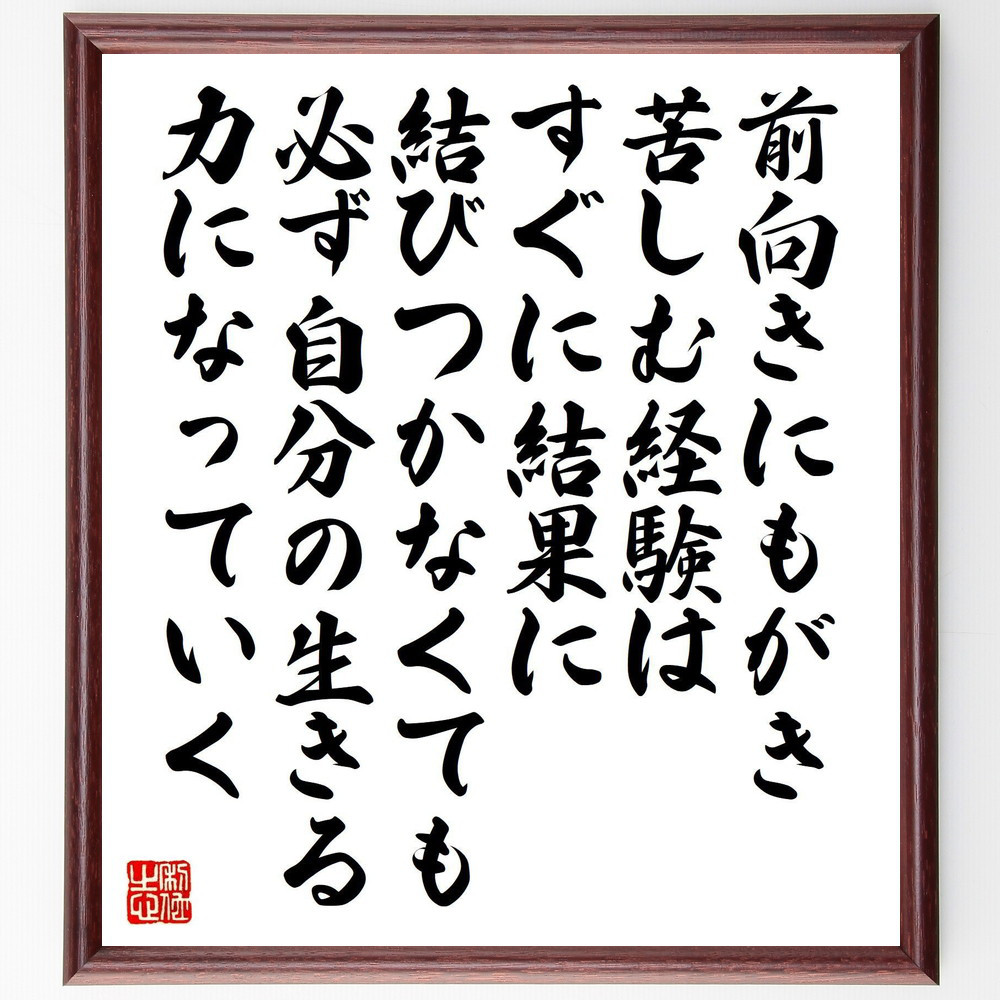 前向きにもがき
苦しむ経験は
すぐに結果に
結びつかなくても
必ず自分の生きる
力になっていく